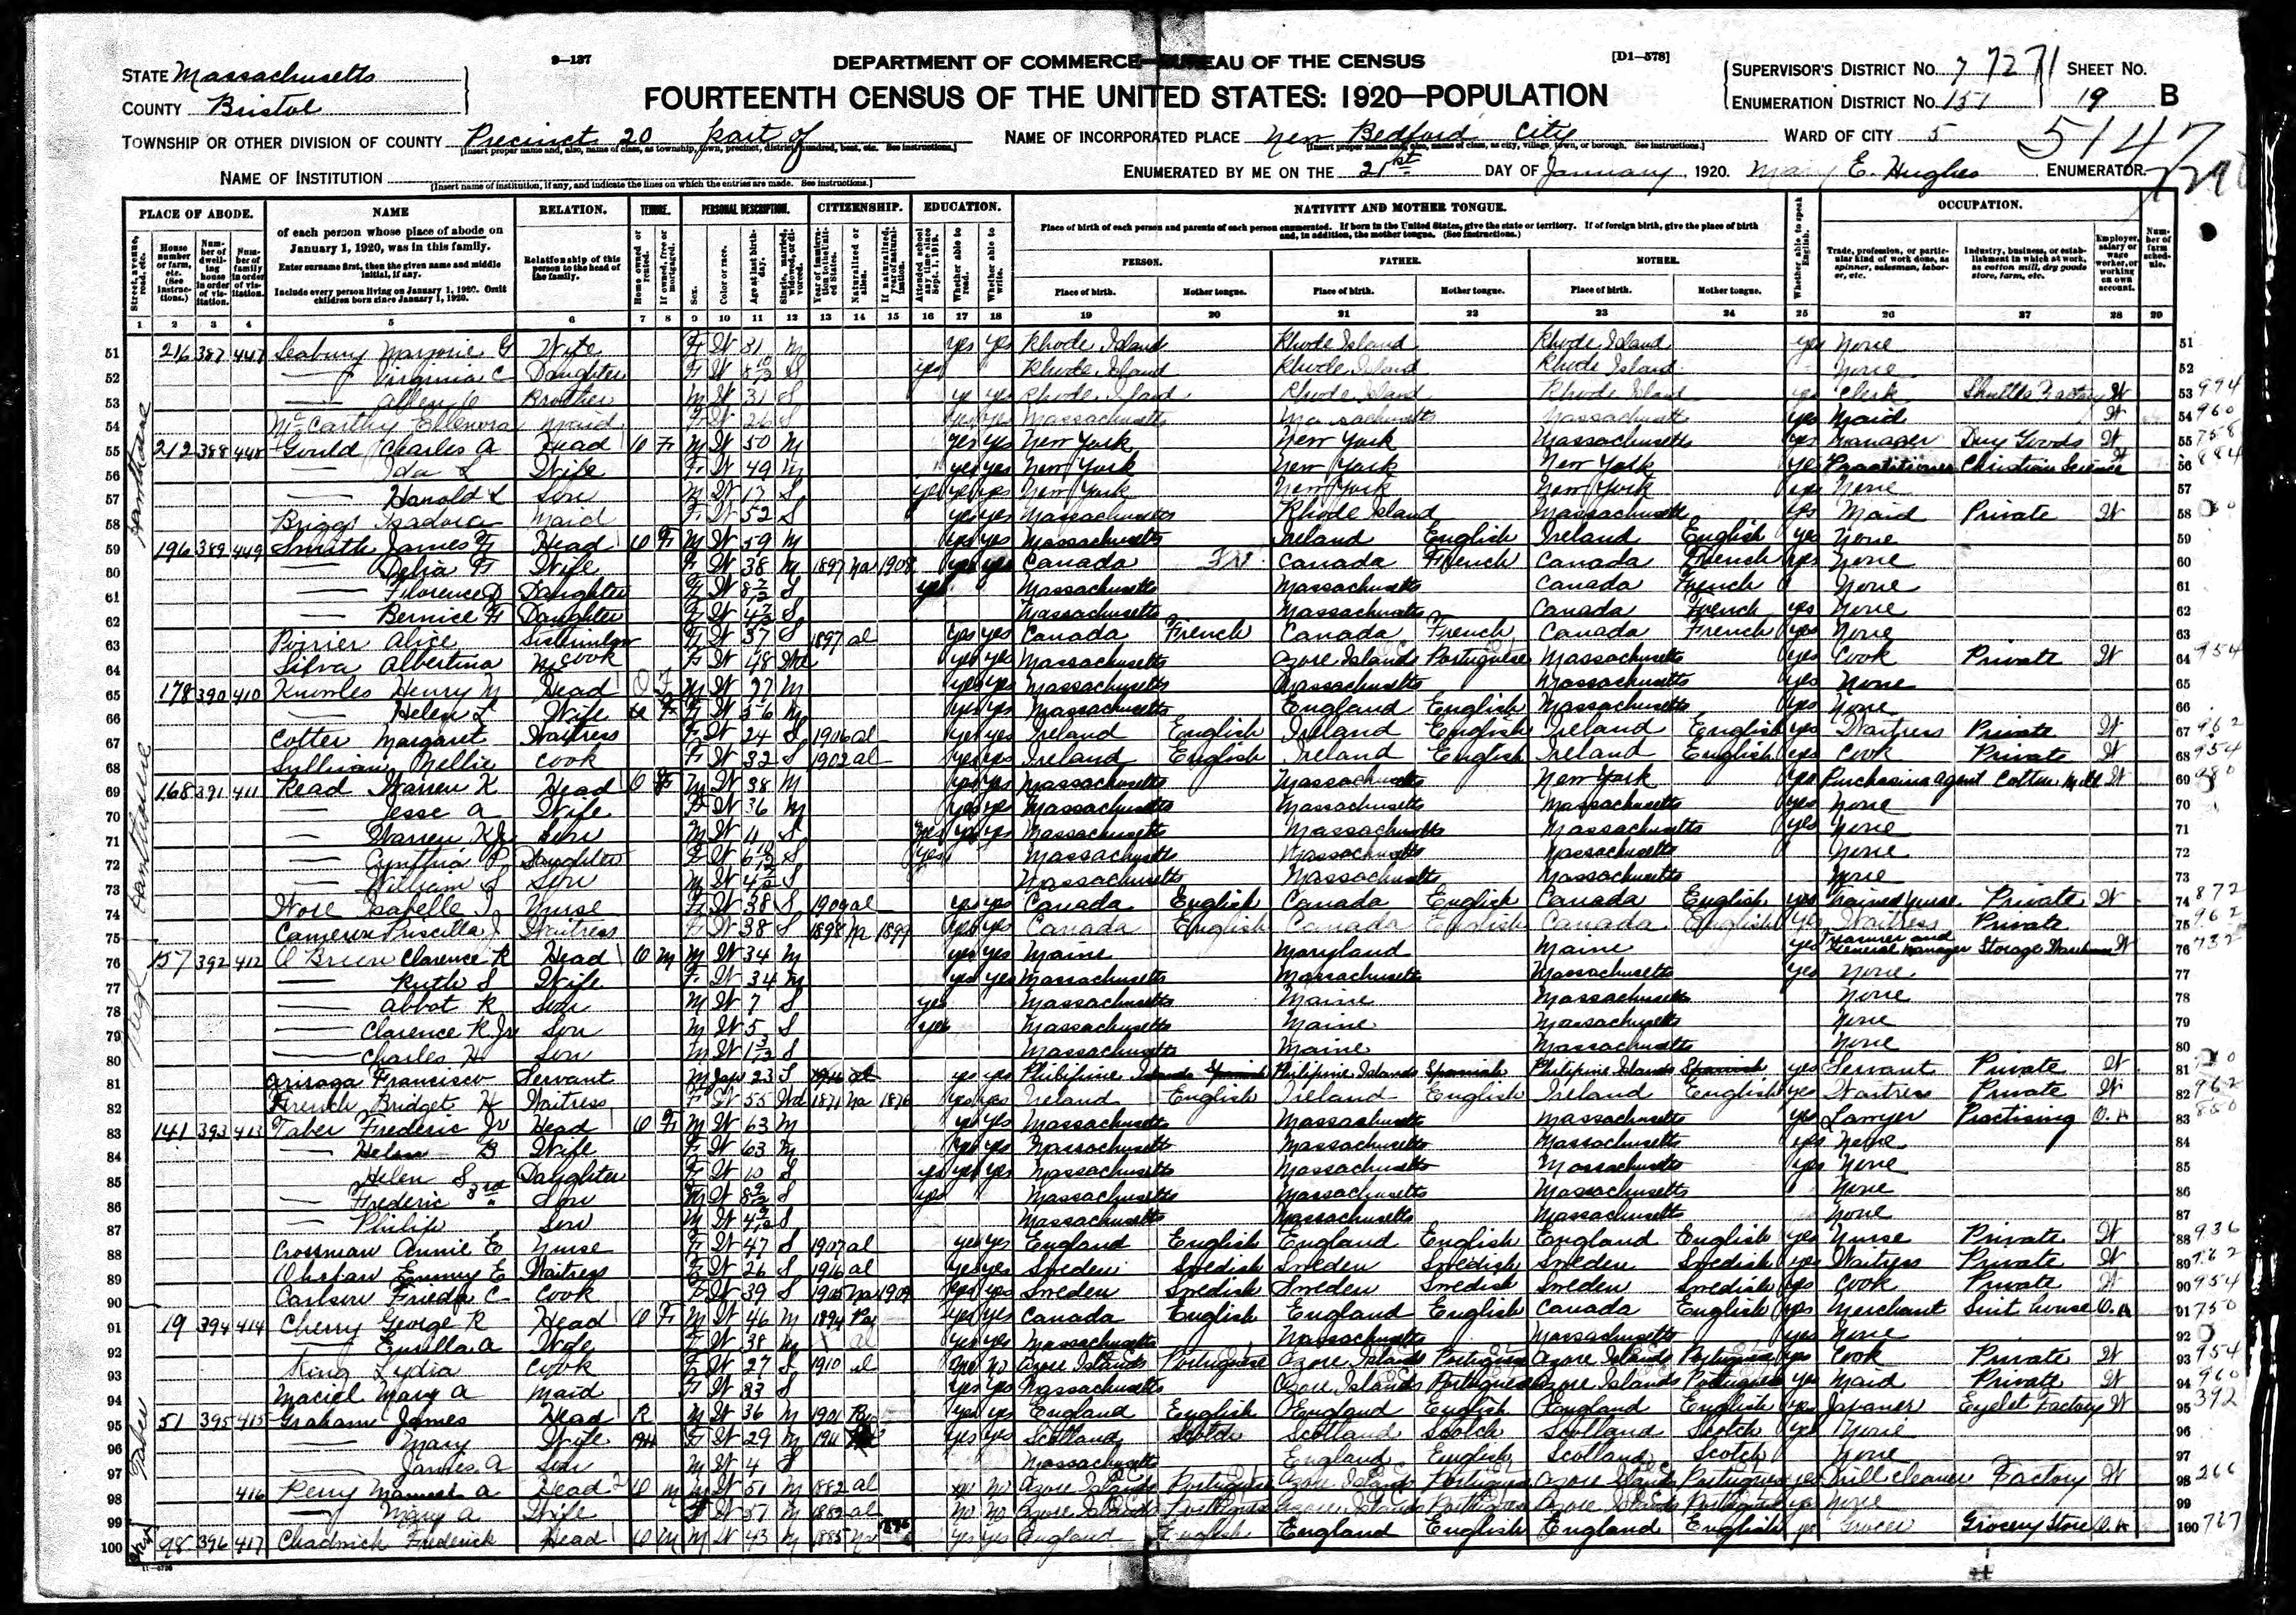 9—137
DEPARTMENT OF COMMERCE—BUREAU OF THE CENSUS
[D1—578]
STATE Massachusetts
COUNTY Bristol
FOURTEENTH CENSUS OF THE UNITED STATES: 1920—POPULATION
SUPERVISOR'S DISTRICT No. 7
ENUMERATION DISTRICT No. 151
SHEET No. 19 B
TOWNSHIP OR OTHER DIVISION OF COUNTY Precinct 20 part of
[Insert proper name and, also, name of class, as township, town, precinct, district, hundred, beat, etc. See instructions.]
NAME OF INCORPORATED PLACE New Bedford City
[Insert proper name and, also, name of class, as city, village, town, or borough. See instructions.]
WARD OF CITY 5
5147
NAME OF INSTITUTION
[Insert name of institution, if any, and indicate the lines on which the entries are made. See instructions.]
ENUMERATED BY ME ON THE 21st DAY OF January, 1920. Mary E. Hughes ENUMERATOR.
PLACE OF ABODE. NAME RELATION. TENURE. PERSONAL DESCRIPTION. CITIZENSHIP. EDUCATION. NATIVITY AND MOTHER TONGUE. OCCUPATION.
of each person whose place of abode on January 1, 1920, was in this family.
Enter surname first, then the given name and middle initial, if any.
Include every person living on January 1, 1920. Omit children born since January 1, 1920.
Relationship of this person to the head of the family.
Place of birth of each person and parents of each person enumerated. If born in the United States, give the state or territory. If of foreign birth, give the place of birth and, in addition, the mother tongue. (See Instructions.)
PERSON. FATHER. MOTHER.
Place of birth. Mother tongue. Place of birth. Mother tongue. Place of birth. Mother tongue.
1 2 3 4 5 6 7 8 9 10 11 12 13 14 15 16 17 18 19 20 21 22 23 24 25 26 27 28 29
51 216 387 447 Seabury Marjorie G Wife F W 31 M yes yes Rhode Island Rhode Island Rhode Island yes None 51
52 Virginia C Daughter F W 8 10/12 S yes Rhode Island Rhode Island Rhode Island None 52
53 Brother M W 31 S yes Rhode Island Rhode Island Rhode Island Clerk W 53
54 McCarthy Ellenora Maid F W 26 S yes yes Massachusetts Massachusetts Massachusetts yes Maid W 54 960
55 212 388 448 Gould Charles A Head O F M W 50 M yes yes New York New York Massachusetts yes Manager Dry Goods W 55 758
56 Ida L Wife F W 49 M yes yes New York New York New York yes Practitioner Christian Science 56 884
57 Harold L Son M W 17 S yes yes yes New York New York New York yes None 57
58 Briggs Isadora Maid F W 52 S yes yes Massachusetts Rhode Island Massachusetts yes Maid Private W 58
59 196 389 449 Smith James F Head O F M W 59 M yes yes Massachusetts Ireland English Ireland English yes None 59
60 Delia F Wife F W 38 M 1897 Na 1908 yes yes Canada Fr Canada French Canada French yes None 60
61 Florence D Daughter F W S yes Massachusetts Massachusetts Canada French None 61
62 Bernice F Daughter F W S Massachusetts Massachusetts Canada French yes None 62
63 Poirier Alice Sisterinlaw F W 37 S 1897 al yes yes Canada French Canada French Canada French yes None 63
64 Silva Albertina M Cook F W 48 Wd yes yes Massachusetts Azore Islands Portuguese Massachusetts yes Cook Private W 64 954
65 178 390 410 Knowles Henry M Head O F M W M yes yes Massachusetts Massachusetts Massachusetts yes None 65
66 Helen L Wife F W 56 M yes yes Massachusetts England English Massachusetts yes None 66
67 Cotter Margaret Waitress F W 24 S 1906 al yes yes Ireland English Ireland English Ireland English yes Waitress Private W 67 962
68 Sullivan Nellie Cook F W 32 S 1902 al yes yes Ireland English Ireland English Ireland English yes Cook Private W 68 954
69 168 391 411 Read Warren K Head O F M W 38 M yes yes Massachusetts Massachusetts New York yes Purchasing agent Cotton Mill W 69
70 Jesse A Wife F W 36 M yes yes Massachusetts Massachusetts Massachusetts yes None 70
71 Warren K Jr Son M W 11 S yes yes yes Massachusetts Massachusetts Massachusetts yes None 71
72 Cynthia P Daughter F W 6 10/12 S yes Massachusetts Massachusetts Massachusetts None 72
73 William S Son M W S Massachusetts Massachusetts Massachusetts None 73
74 Isabelle J Nurse F W 38 S 1909 al yes yes Canada English Canada English Canada English yes Trained nurse Private W 74 872
75 Cameron Priscilla J Waitress F W 38 S 1898 Na 1899 yes yes Canada English Canada English Canada English yes Waitress Private 75 962
76 157 392 412 O Brien Clarence R Head O M M W 34 M yes yes Maine Maryland Maine yes Treasurer and General Manager Storage Warehouse W 76 732
77 Ruth S Wife F W 34 M yes yes Massachusetts Massachusetts Massachusetts yes None 77
78 Abbot R Son M W 7 S yes Massachusetts Maine Massachusetts None 78
79 Clarence R Jr Son M W 5 S yes Massachusetts Maine Massachusetts None 79
80 Charles H Son M W 1 3/12 S Massachusetts Maine Massachusetts None 80
81 Arisaga Francisco Servant M 23 S yes yes Philipine Islands Spanish Philipine Islands Spanish Philipine Islands Spanish yes Servant Private W 81
82 French Bridget H Waitress F W 55 Wd 1871 Na 1876 yes yes Ireland English Ireland English Ireland English yes Waitress Private W 82 962
83 141 393 413 Taber Frederic Jr Head O F M W 63 M yes yes Massachusetts Massachusetts Massachusetts yes Lawyer Practising O.A 83
84 Helen B Wife F W 63 M yes yes Massachusetts Massachusetts Massachusetts yes None 84
85 Helen S Daughter F W 10 S yes yes yes Massachusetts Massachusetts Massachusetts yes None 85
86 Frederic 3rd Son M W 8 9/12 S yes Massachusetts Massachusetts Massachusetts None 86
87 Philip Son M W 4 9/12 S Massachusetts Massachusetts Massachusetts None 87
88 Crossman Annie E Nurse F W 47 S 1907 al yes yes England English England English England English yes Nurse Private W 88 936
89 E Waitress F W 26 S 1916 al yes yes Sweden Swedish Sweden Swedish Sweden Swedish yes Waitress Private W 89 962
90 Carlson Frieda C Cook F W 39 S 1905 Na 1909 yes yes Sweden Swedish Sweden Swedish Sweden Swedish yes Cook Private W 90 954
91 19 394 414 Cherry George R Head O F M W 46 M 1894 Pa yes yes Canada English England English Canada English yes Merchant Suit house O.A 91 750
92 A Wife F W 38 M al yes yes Massachusetts Massachusetts Massachusetts yes None 92
93 King Lydia Cook F W 27 S 1910 al no no Azore Islands Portuguese Azore Islands Portuguese Azore Islands Portuguese yes Cook Private W 93 954
94 Maciel Mary A Maid F W S yes yes Massachusetts Azore Islands Portuguese Azore Islands Portuguese yes Maid Private W 94 960
95 51 395 415 Graham James Head R M W 36 M 1901 Pa yes yes England English England English England English yes Japaner Eyelet Factory W 95 392
96 Mary Wife F W 29 M 1911 yes yes Scotland Scotch Scotland Scotch Scotland Scotch yes None 96
97 James A Son M W 4 S Massachusetts England English Scotland Scotch None 97
98 416 Perry Manuel A Head O M M W 51 M 1882 al no no Azore Islands Portuguese Azore Islands Portuguese Azore Islands Portuguese yes Mill Cleaner Factory W 98 266
99 Mary A Wife F W 57 M 1882 al no no Azore Islands Portuguese Azore Islands Portuguese Azore Islands Portuguese yes None 99
100 98 396 417 Chadwick Frederick Head O M M W 43 M 1885 Na yes yes England English England English England English yes Grocer Grocery Store O.A 100 727
11—6796